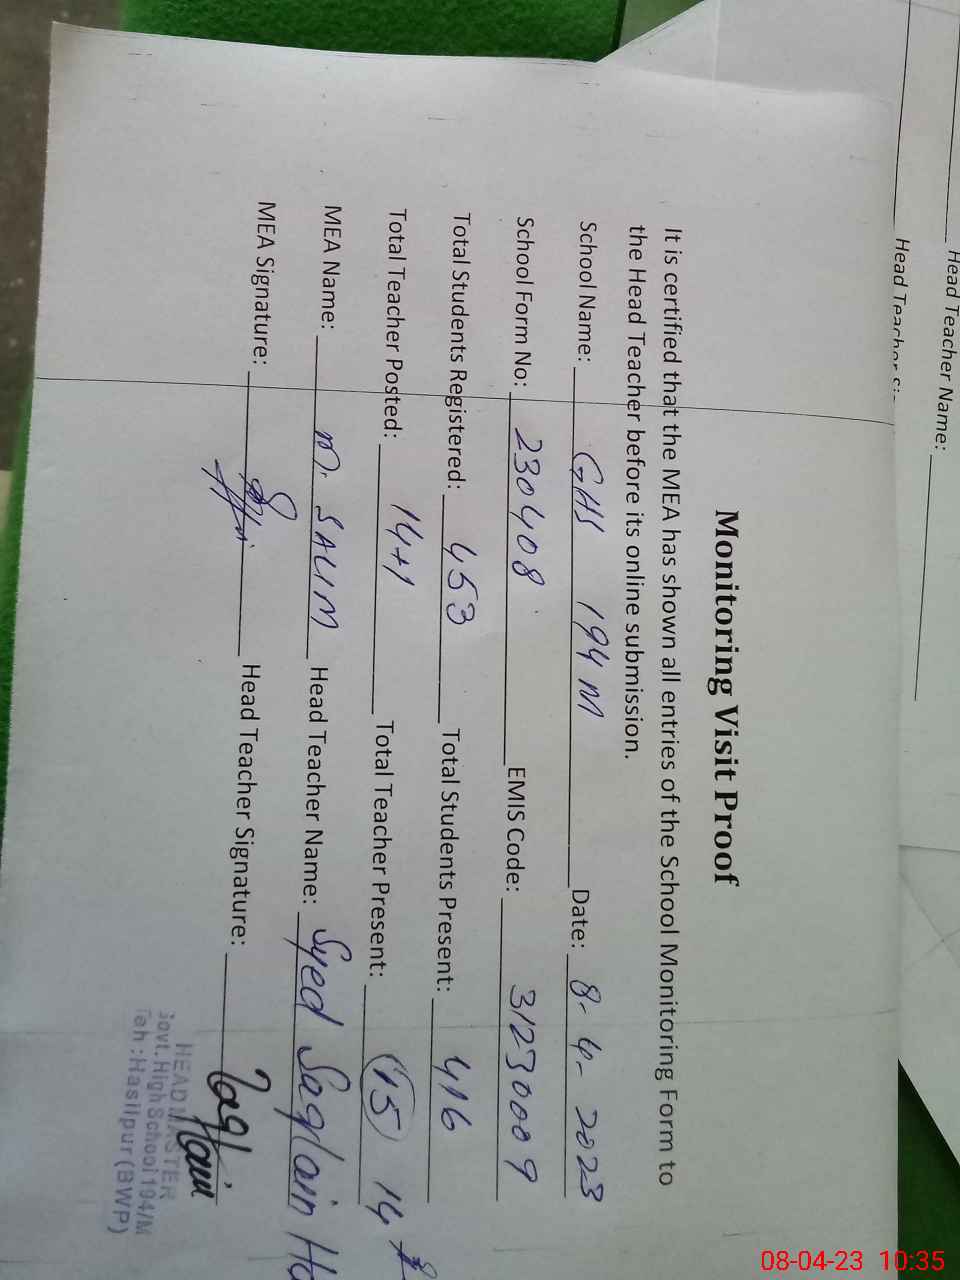 Head Teacher Name:
Head Teacher
Monitoring Visit Proof
It is certified that the MEA has shown all entries of the School Monitoring Form to
the Head Teacher before its online submission.
School Name: GHS 194 M Date: 8-4-2023
School Form No: 230408 EMIS Code: 31230009
Total Students Registered: 453 Total Students Present: 416
Total Teacher Posted: 14+1 Total Teacher Present: 15 14
MEA Name: M. SALIM Head Teacher Name: Syed Saqlain
MEA Signature: Head Teacher Signature: Saqlain
HEADMASTER
Govt. High School 194/M
Teh: Hasilpur (BWP)
08-04-23 10:35